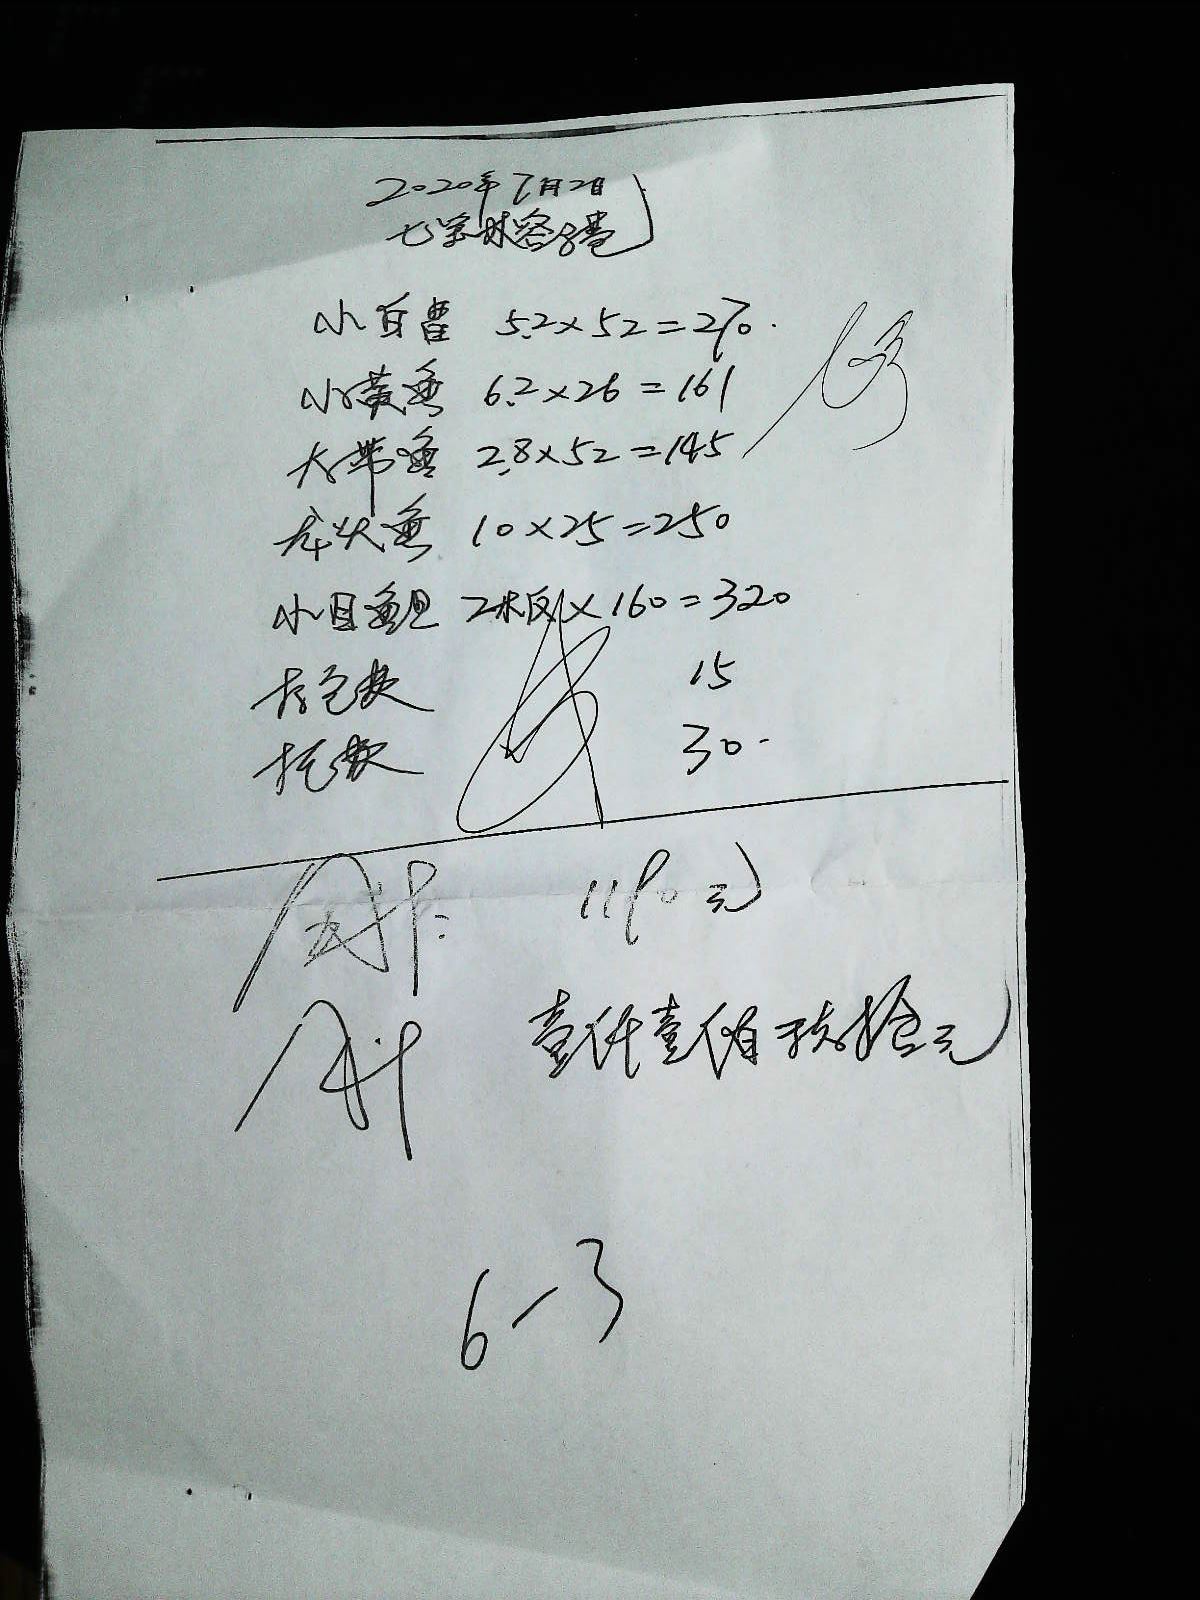 2020年7月2日
小白
5.2×52=270.
小黄鱼 6.2×26=161
大带鱼 2.8×52=145
龙头鱼 10×25=250
小目鱼 2板×160=320
打包费 15
托费 30.
1190元
壹仟壹佰玖拾元
6-3